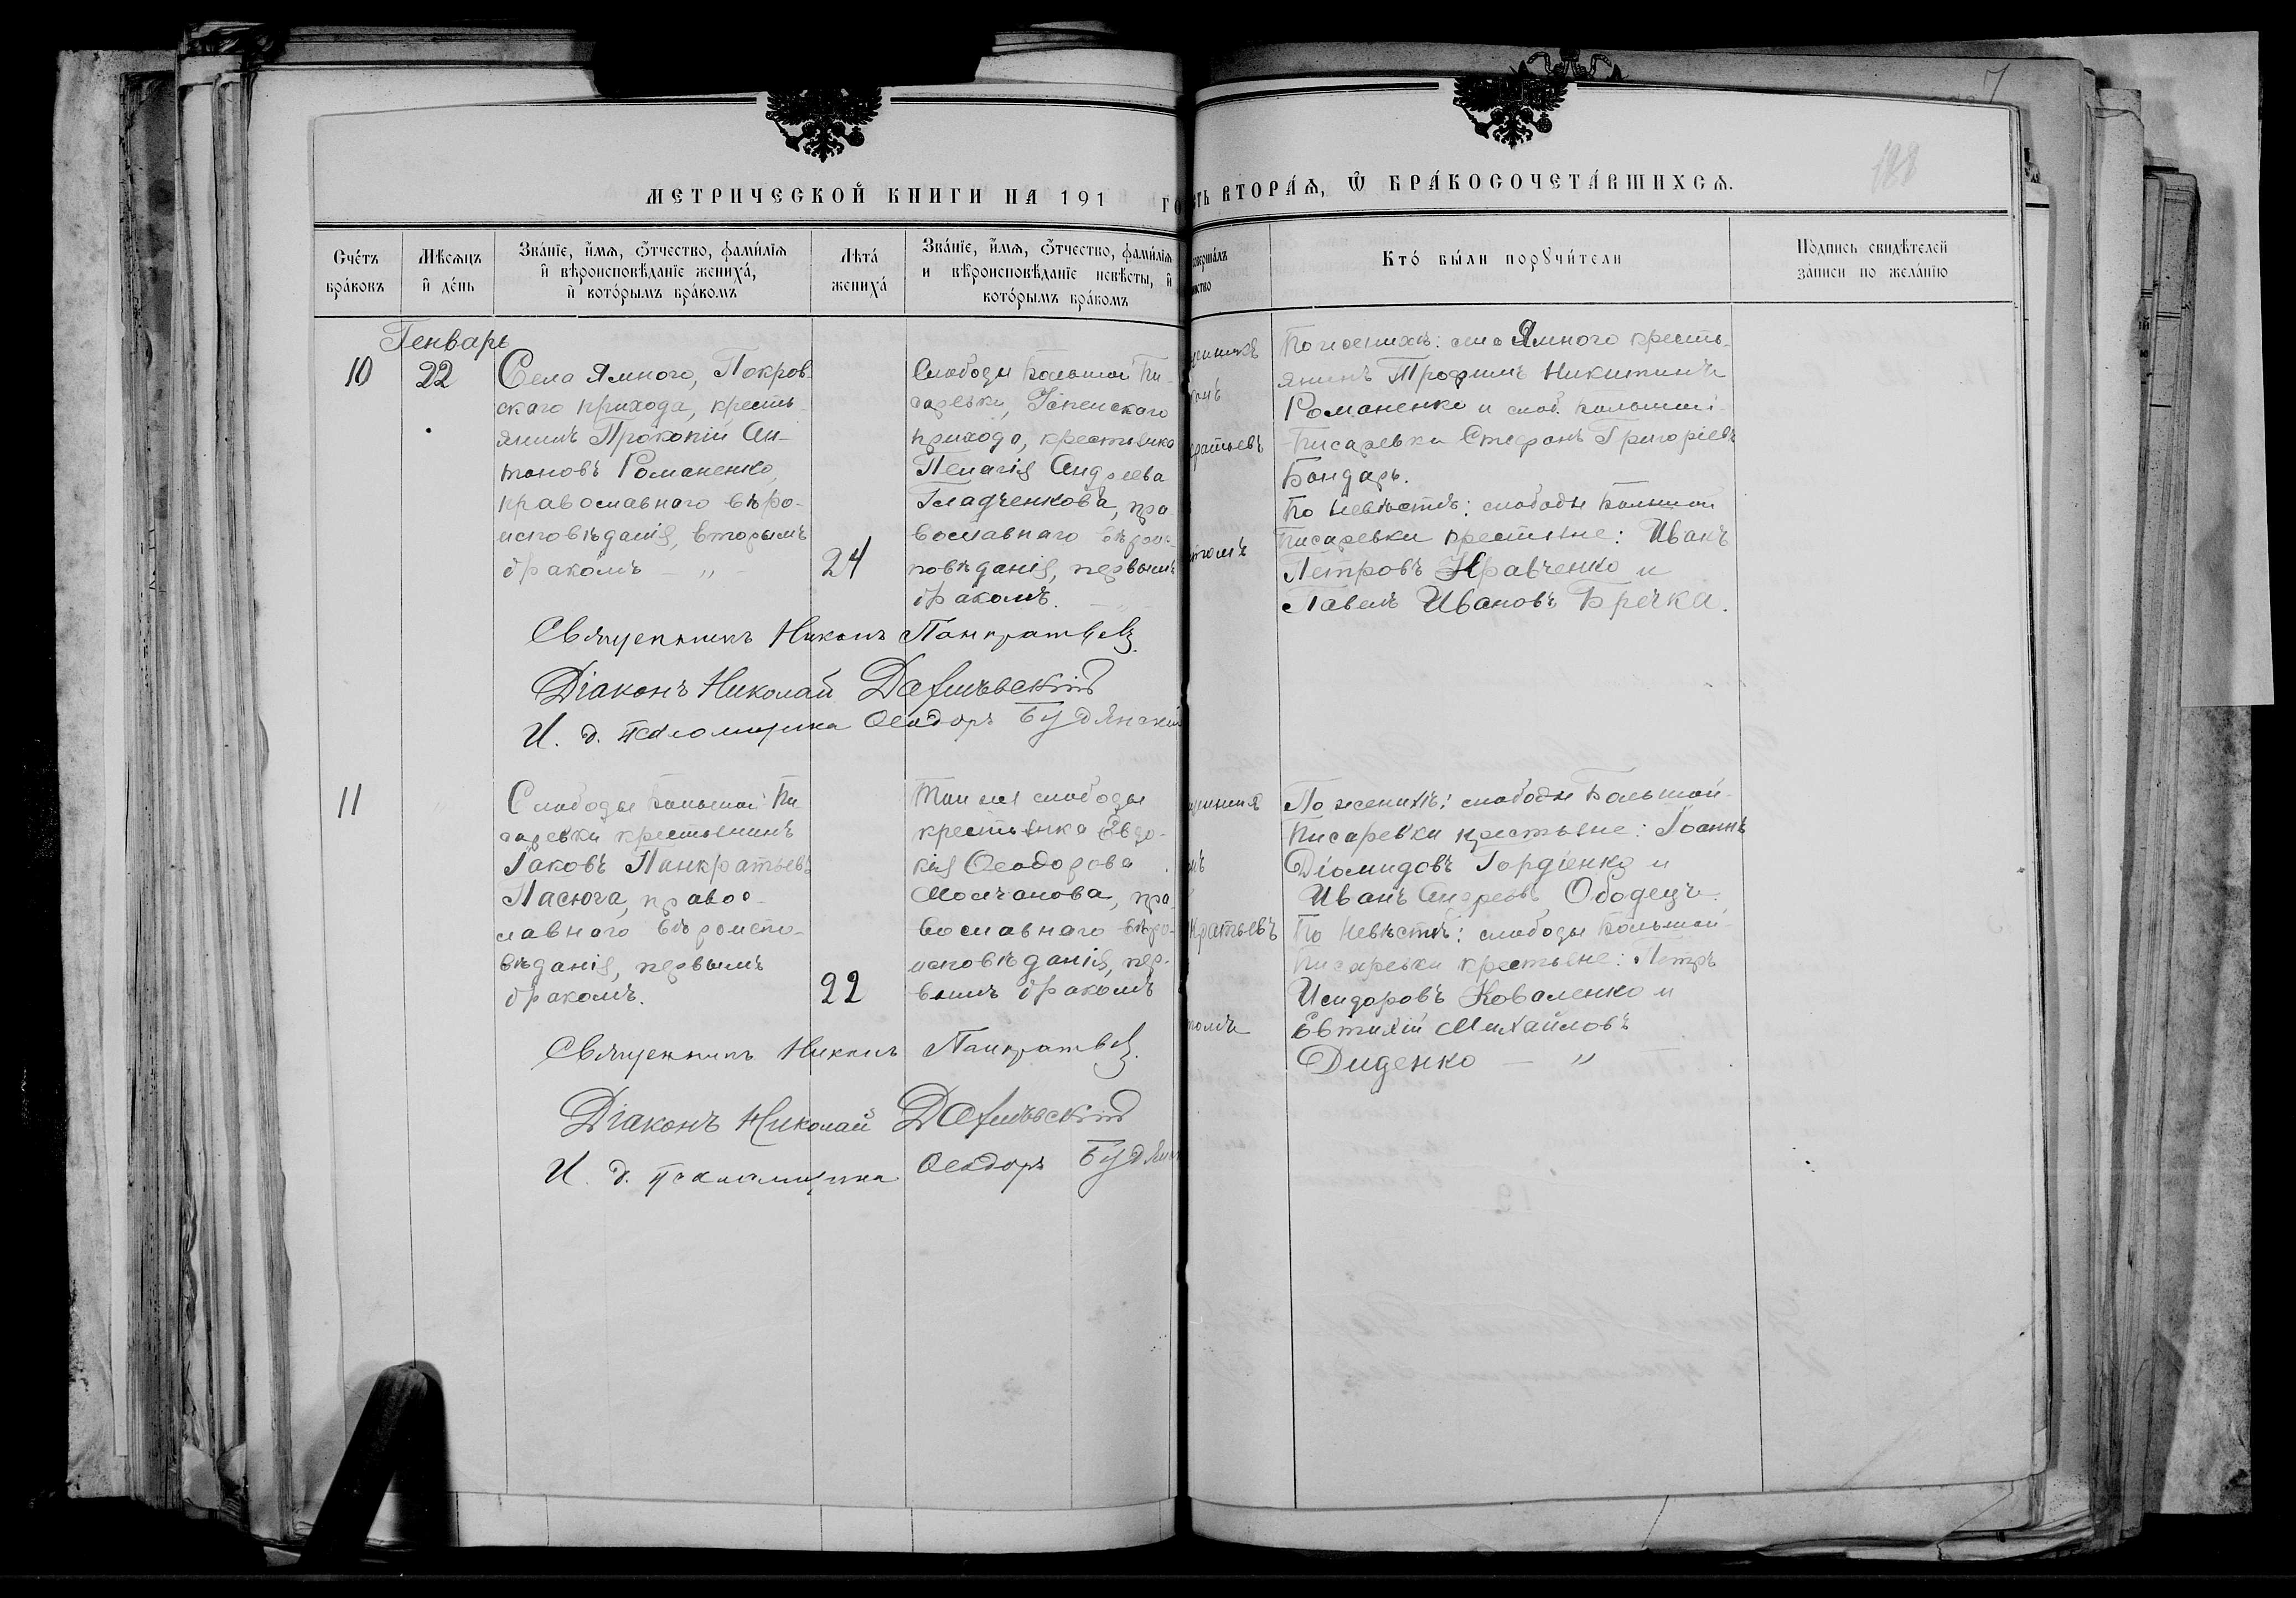 7
198
МЕТРИЧЕСКОЙ КНИГИ НА 191 ГО
СТЬ ВТОРАѦ, Ѿ БРАКОСОЧЕТАВШИХСѦ.
Счетъ браковъ
Мѣсяцъ и день
Званіе, имѧ, ѿтчество, фамиліѧ
и вѣроисповѣданіе жениха,
и которымъ бракомъ
Лѣта жениха
Званіе, имѧ, ѿтчество, фамиліѧ
и вѣроисповѣданіе невѣсты, и
которымъ бракомъ
совершалъ
Кто были порꙋчители
Подпись свидѣтелей
записи по желанію
Генварь
10
22
Села Ямного, Покров-
скаго прихода, кресть-
янинъ Прокопій Ан-
тоновъ Романенко,
православнаго вѣро-
исповѣданія, вторымъ
бракомъ — „
24
Слободы Большой Пи-
саревки, Успенскаго
прихода, крестьянка
Пелагія Андреева
Гладченкова, пра-
вославнаго вѣроис-
повѣданія, первымъ
бракомъ. — „
ратьевъ
По женихѣ: села Ямного кресть-
янинъ Трофимъ Никитинъ
Романенко и слоб. Большой-
Писаревки Стефанъ Григоріевъ
Бондарь.
По невѣстѣ: слободы Большой
Писаревки крестьяне: Иванъ
Петровъ Кравченко и
Павелъ Ивановъ Бречка.
Священникъ Никонъ Панкратьевъ.
Діаконъ Николай
И. д. псаломщика Ѳеодоръ Будянскій
11
„
Слободы Большой Пи-
саревки крестьянинъ
Іаковъ Панкратьевъ
Пасюга, правос-
лавнаго вѣроиспо-
вѣданія, первымъ
бракомъ.
22
Той же слободы
крестьянка Евдо-
кія Ѳеодорова
Молчанова, пра-
вославнаго вѣро-
исповѣданія, пер-
вымъ бракомъ
кратьевъ
По женихѣ: слободы Большой-
Писаревки крестьяне: Іоаннъ
Діомидовъ Гордіенко и
Иванъ Андреевъ Ободецъ.
По невѣстѣ: слободы Большой-
Писаревки крестьяне: Петръ
Исидоровъ Коваленко и
Евтихій Михайловъ
Диденко — „
Священникъ Никонъ Панкратьевъ.
Діаконъ Николай
И. д. псаломщика Ѳеодоръ Будянс